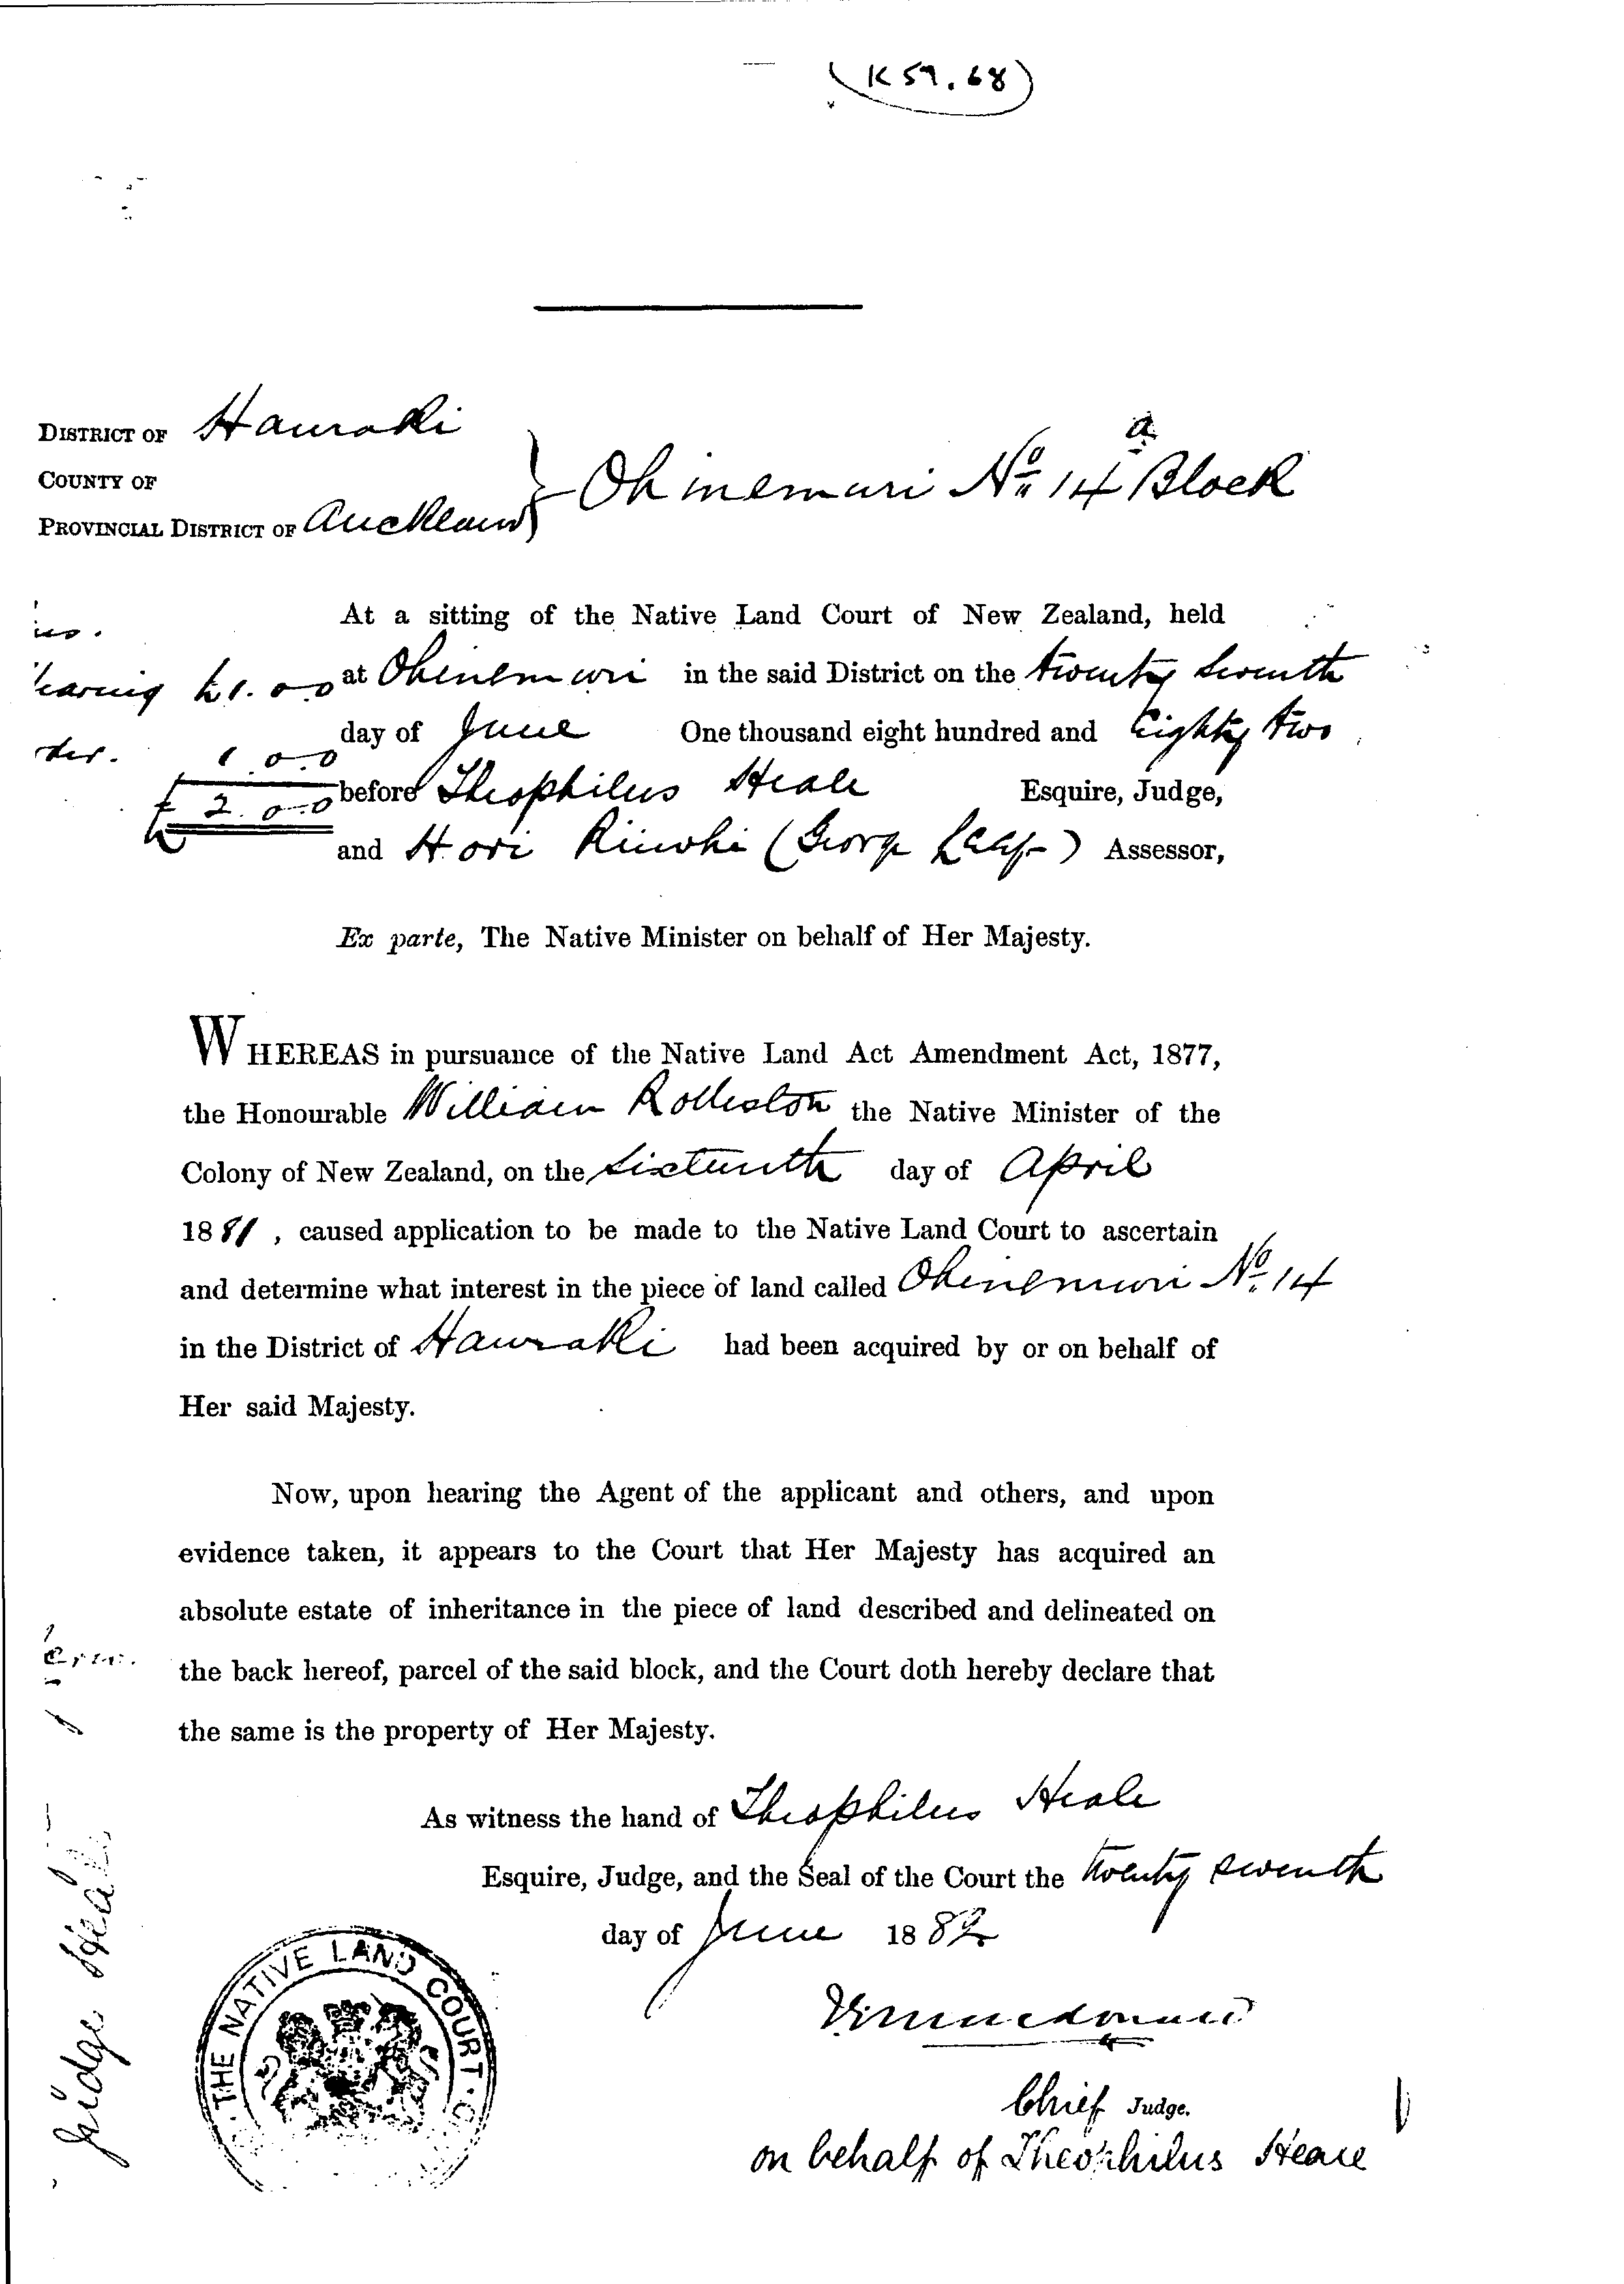 (K 59.68)
DISTRICT OF Hauraki
COUNTY OF
PROVINCIAL DISTRICT OF Auckland
Ohinemuri No. 14a Block
At a sitting of the Native Land Court of New Zealand, held
at Ohinemuri in the said District on the twenty seventh
earing £1.0.0
day of June One thousand eight hundred and Eighty two
der. 1.0.0
before Theophilus Heale Esquire, Judge,
£2.0.0
and Hori (George) Assessor,
Ex parte, The Native Minister on behalf of Her Majesty.
WHEREAS in pursuance of the Native Land Act Amendment Act, 1877,
the Honourable William Rolleston the Native Minister of the
Colony of New Zealand, on the Sixteenth day of April
1881, caused application to be made to the Native Land Court to ascertain
and determine what interest in the piece of land called Ohinemuri No. 14
in the District of Hauraki had been acquired by or on behalf of
Her said Majesty.
Now, upon hearing the Agent of the applicant and others, and upon
evidence taken, it appears to the Court that Her Majesty has acquired an
absolute estate of inheritance in the piece of land described and delineated on
the back hereof, parcel of the said block, and the Court doth hereby declare that
the same is the property of Her Majesty.
As witness the hand of Theophilus Heale
Esquire, Judge, and the Seal of the Court the twenty seventh
day of June 1882
THE NATIVE LAND COURT
Chief Judge.
on behalf of Theophilus Heale
Judge Heale